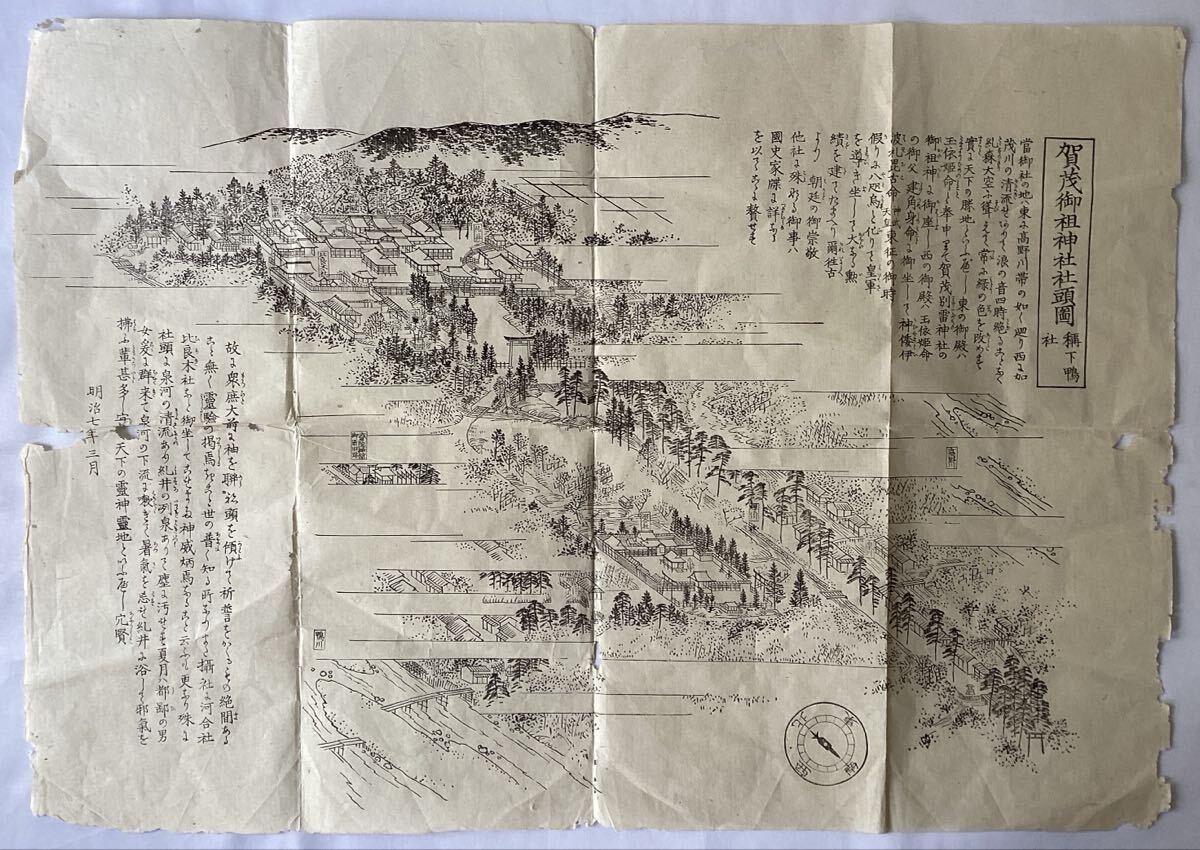 賀茂御祖神社社頭圖 稱下鴨社
當御社の地ハ東に高野川帯の如く廻り西に加
茂川の清流せゝめきて浪の音四時絶ることなく
糺森大空に聳えて常に緑の色を改めす
實に天下の勝地といふべし東の御殿ハ
玉依姫命と奉申りまを賀茂別雷神社の
御祖神に御座し西の御殿ハ玉依姫命
の御父建角身命に御坐して神倭伊
波礼毘古命 神武天皇 東征の御時
假りに八咫烏と化りて皇軍
を導き坐して大なる勲
績を建てたまへり爾徃古
より 朝廷の御崇敬
他社に殊なる御事ハ
國史家牒に詳なる
を以てこゝに贅せす
故に衆庶大前に袖を聨ね頭を傾けて祈誓をかくるもの絶間ある
こと無し靈驗の掲焉なること世の普く知る所なりまた攝社に河合社
比良木社など御坐してこれまた神威炳焉なること云ふも更なり殊に
社頭に泉河の清流あり糺井の列泉ありて塵に汚せす夏月ハ都鄙の男
女爰に群来て泉河の下流に嗽きて暑氣を忘れ糺井に浴して邪氣を
拂ふ輩甚多し実に天下の靈神靈地といふべし穴賢
明治七年三月
高野川
鴨川
北
東
南
西